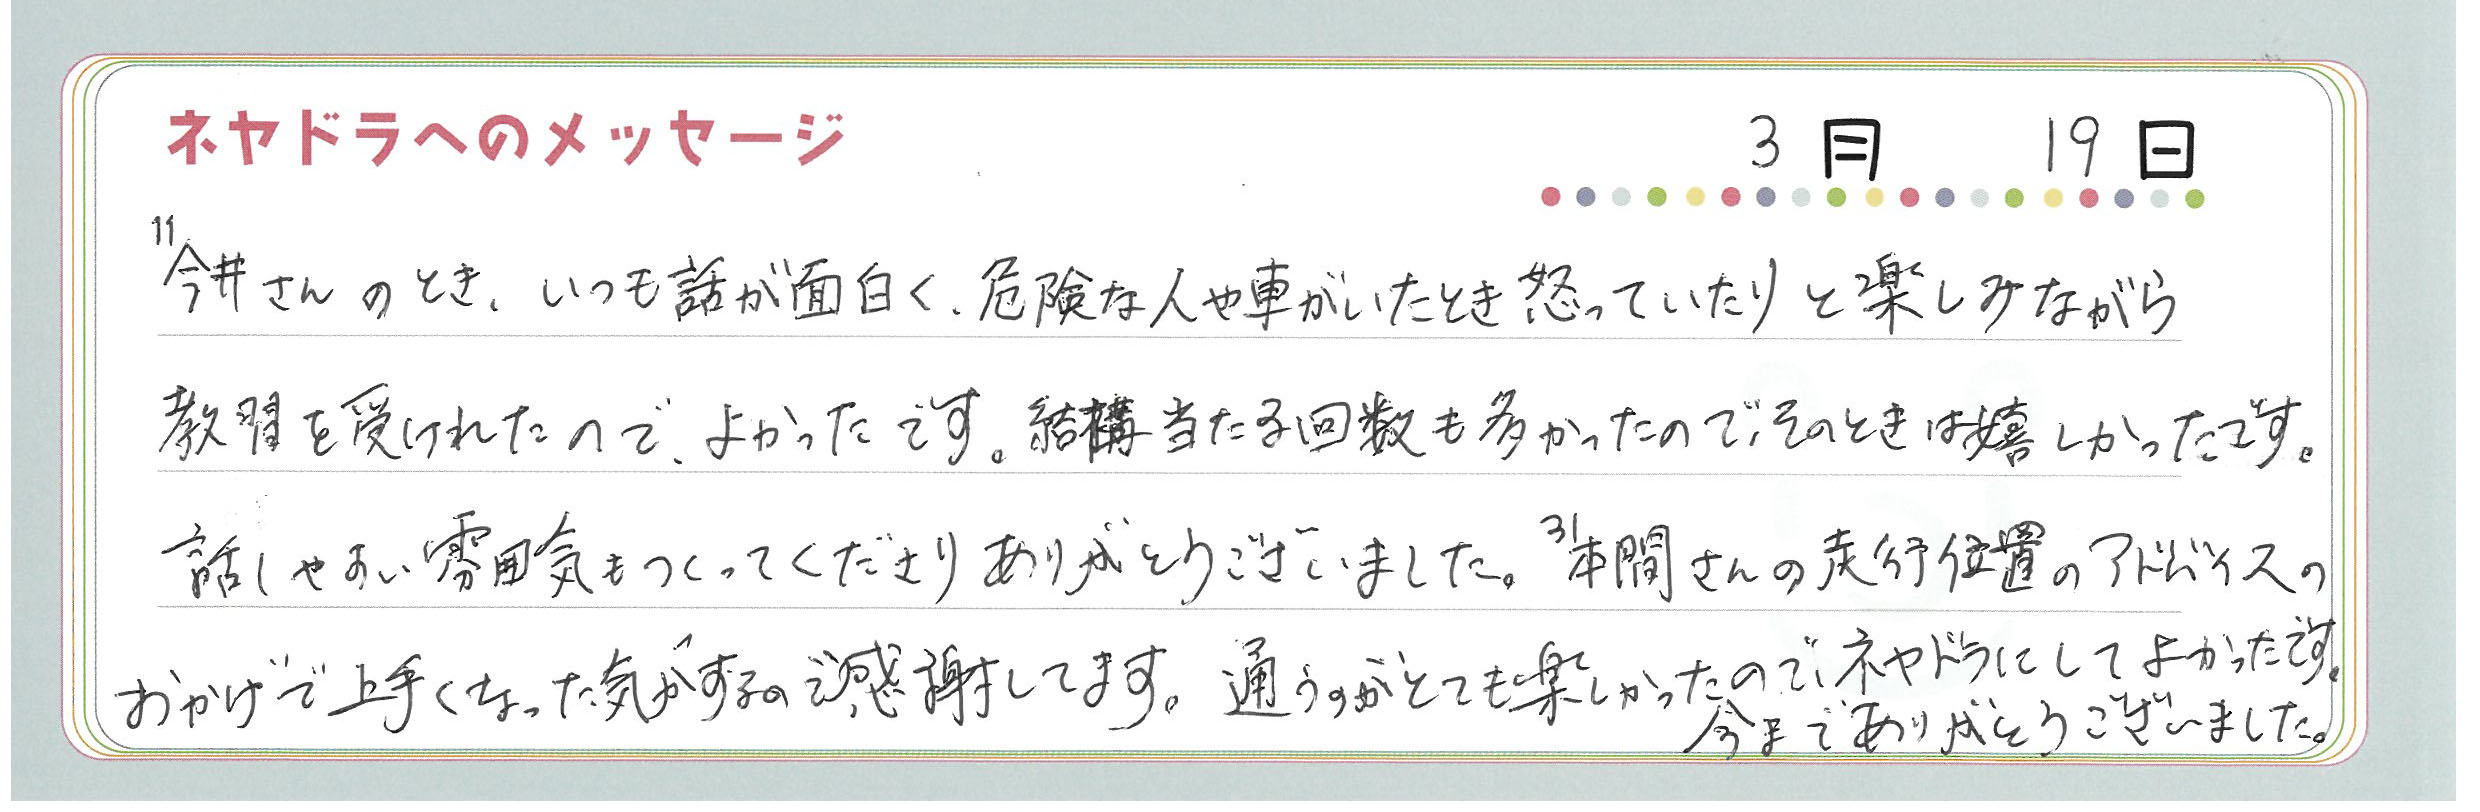 ネヤドラへのメッセージ
3月 19日
11
今井さんのとき、いつも話が面白く、危険な人や車がいたとき怒っていたりと楽しみながら
教習を受けれたので、よかったです。結構当たる回数も多かったので、そのときは嬉しかったです。
話しやすい雰囲気もつくってくださりありがとうございました。31本間さんの走行位置のアドバイスの
おかげで上手くなった気がするので感謝してます。通うのがとても楽しかったので、ネヤドラにしてよかったです。
今までありがとうございました。